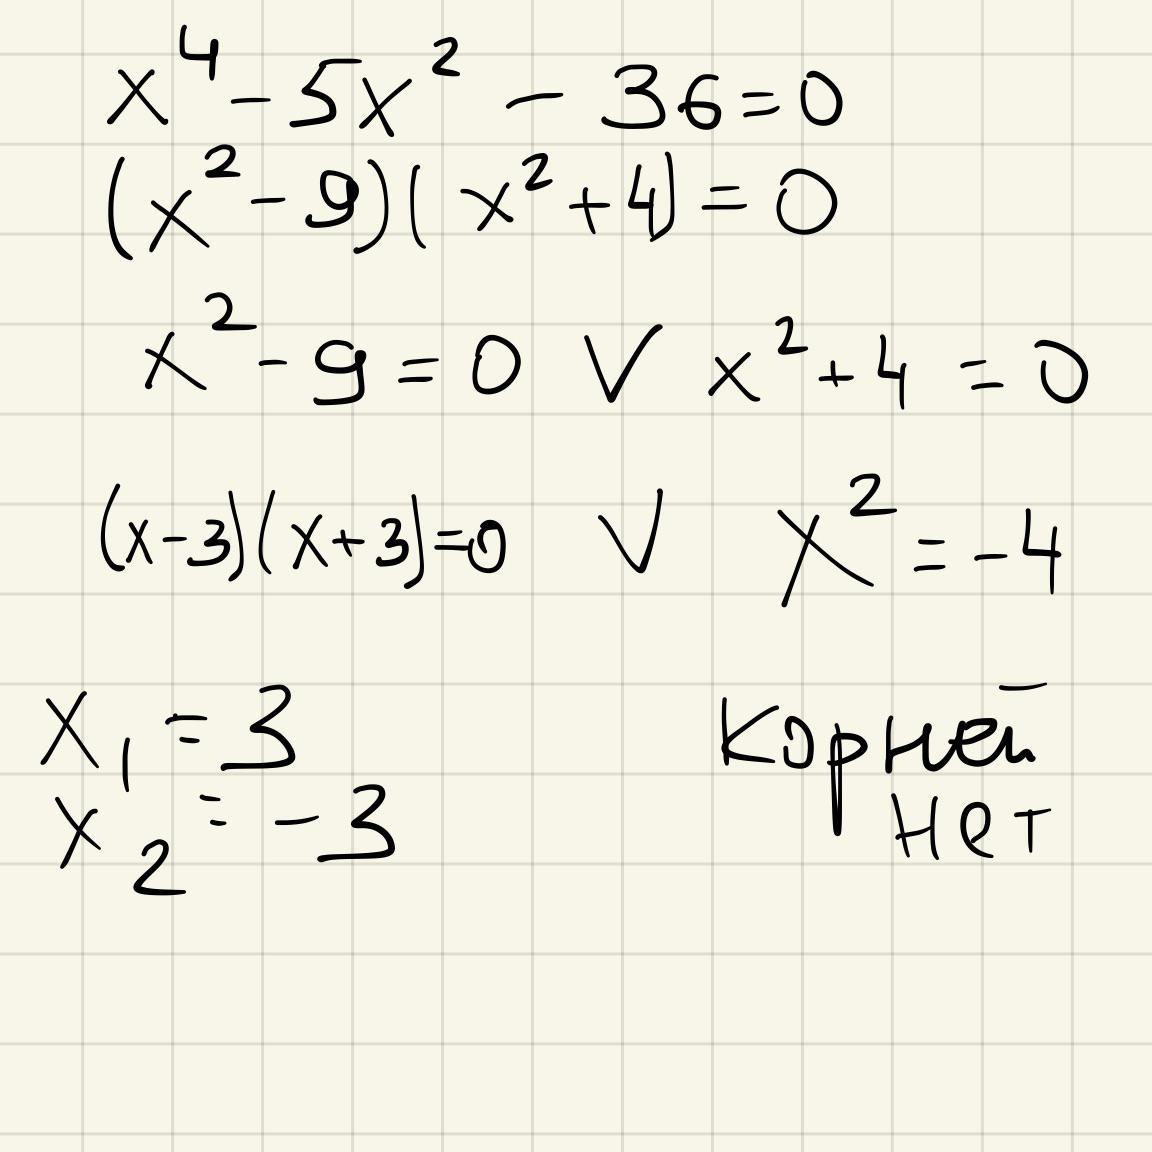 x⁴ - 5x² - 36 = 0
(x² - 9)(x² + 4) = 0
x² - 9 = 0 V x² + 4 = 0
(x-3)(x+3)=0 V x² = -4
x₁ = 3
x₂ = -3
Корней
нет